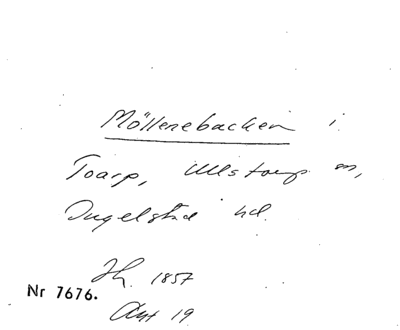 Möllenebacken i
Toarp, Ullstorps sn,
Ingelstad hd.
Jh. 1857
Nr 7676.
Akt 19